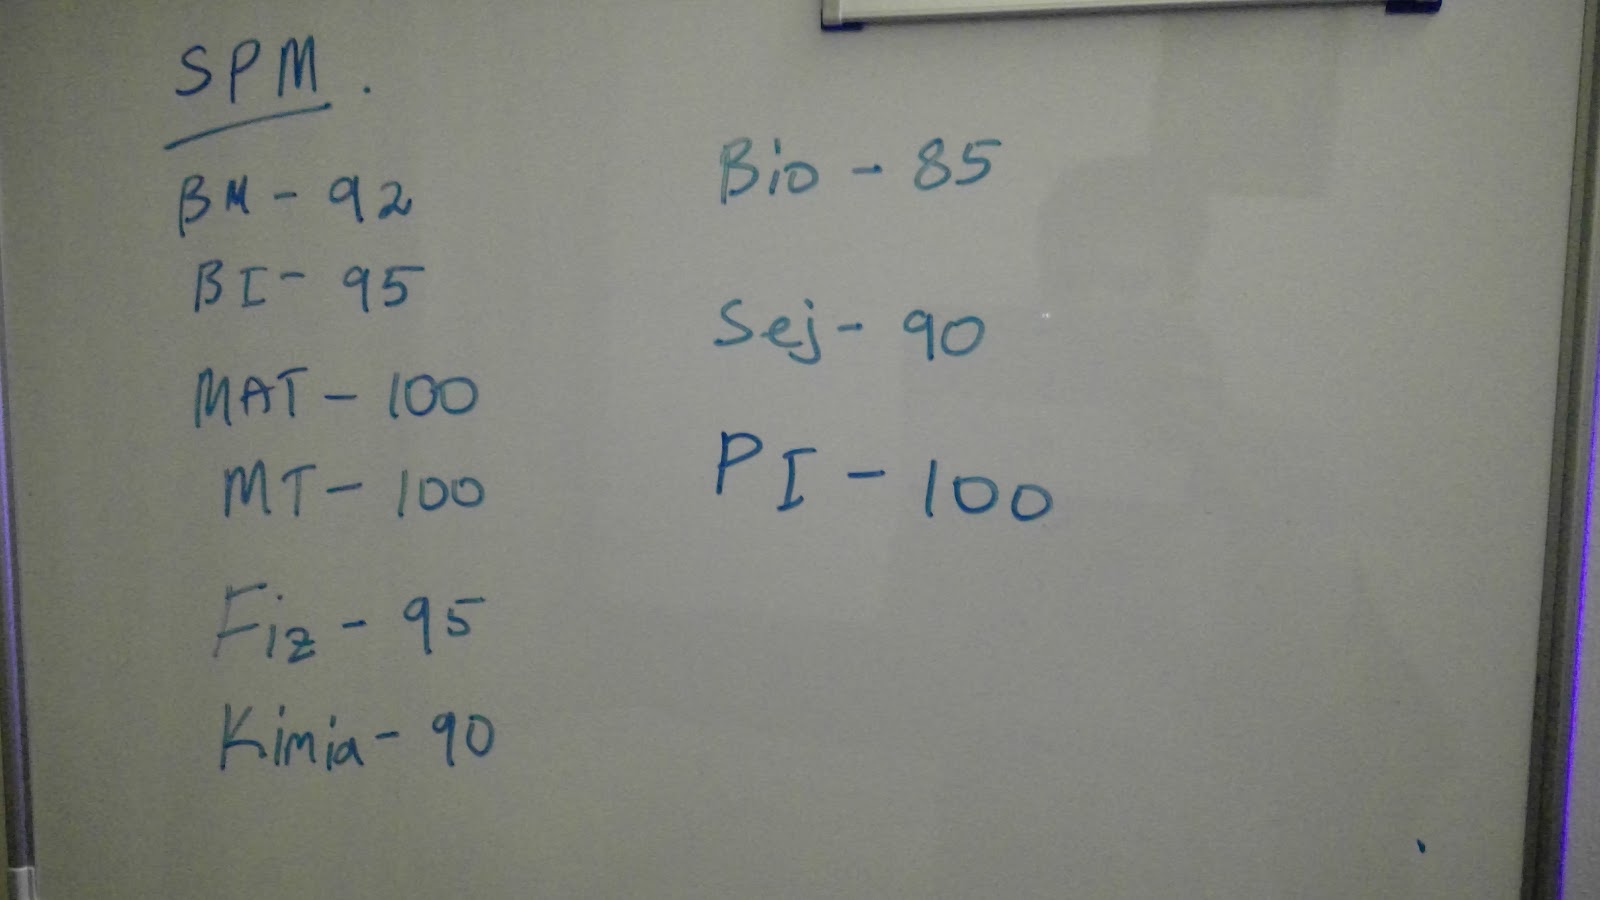 SPM.
BM - 92
BI - 95
MAT - 100
MT - 100
Fiz - 95
Kimia - 90
Bio - 85
Sej - 90
PI - 100